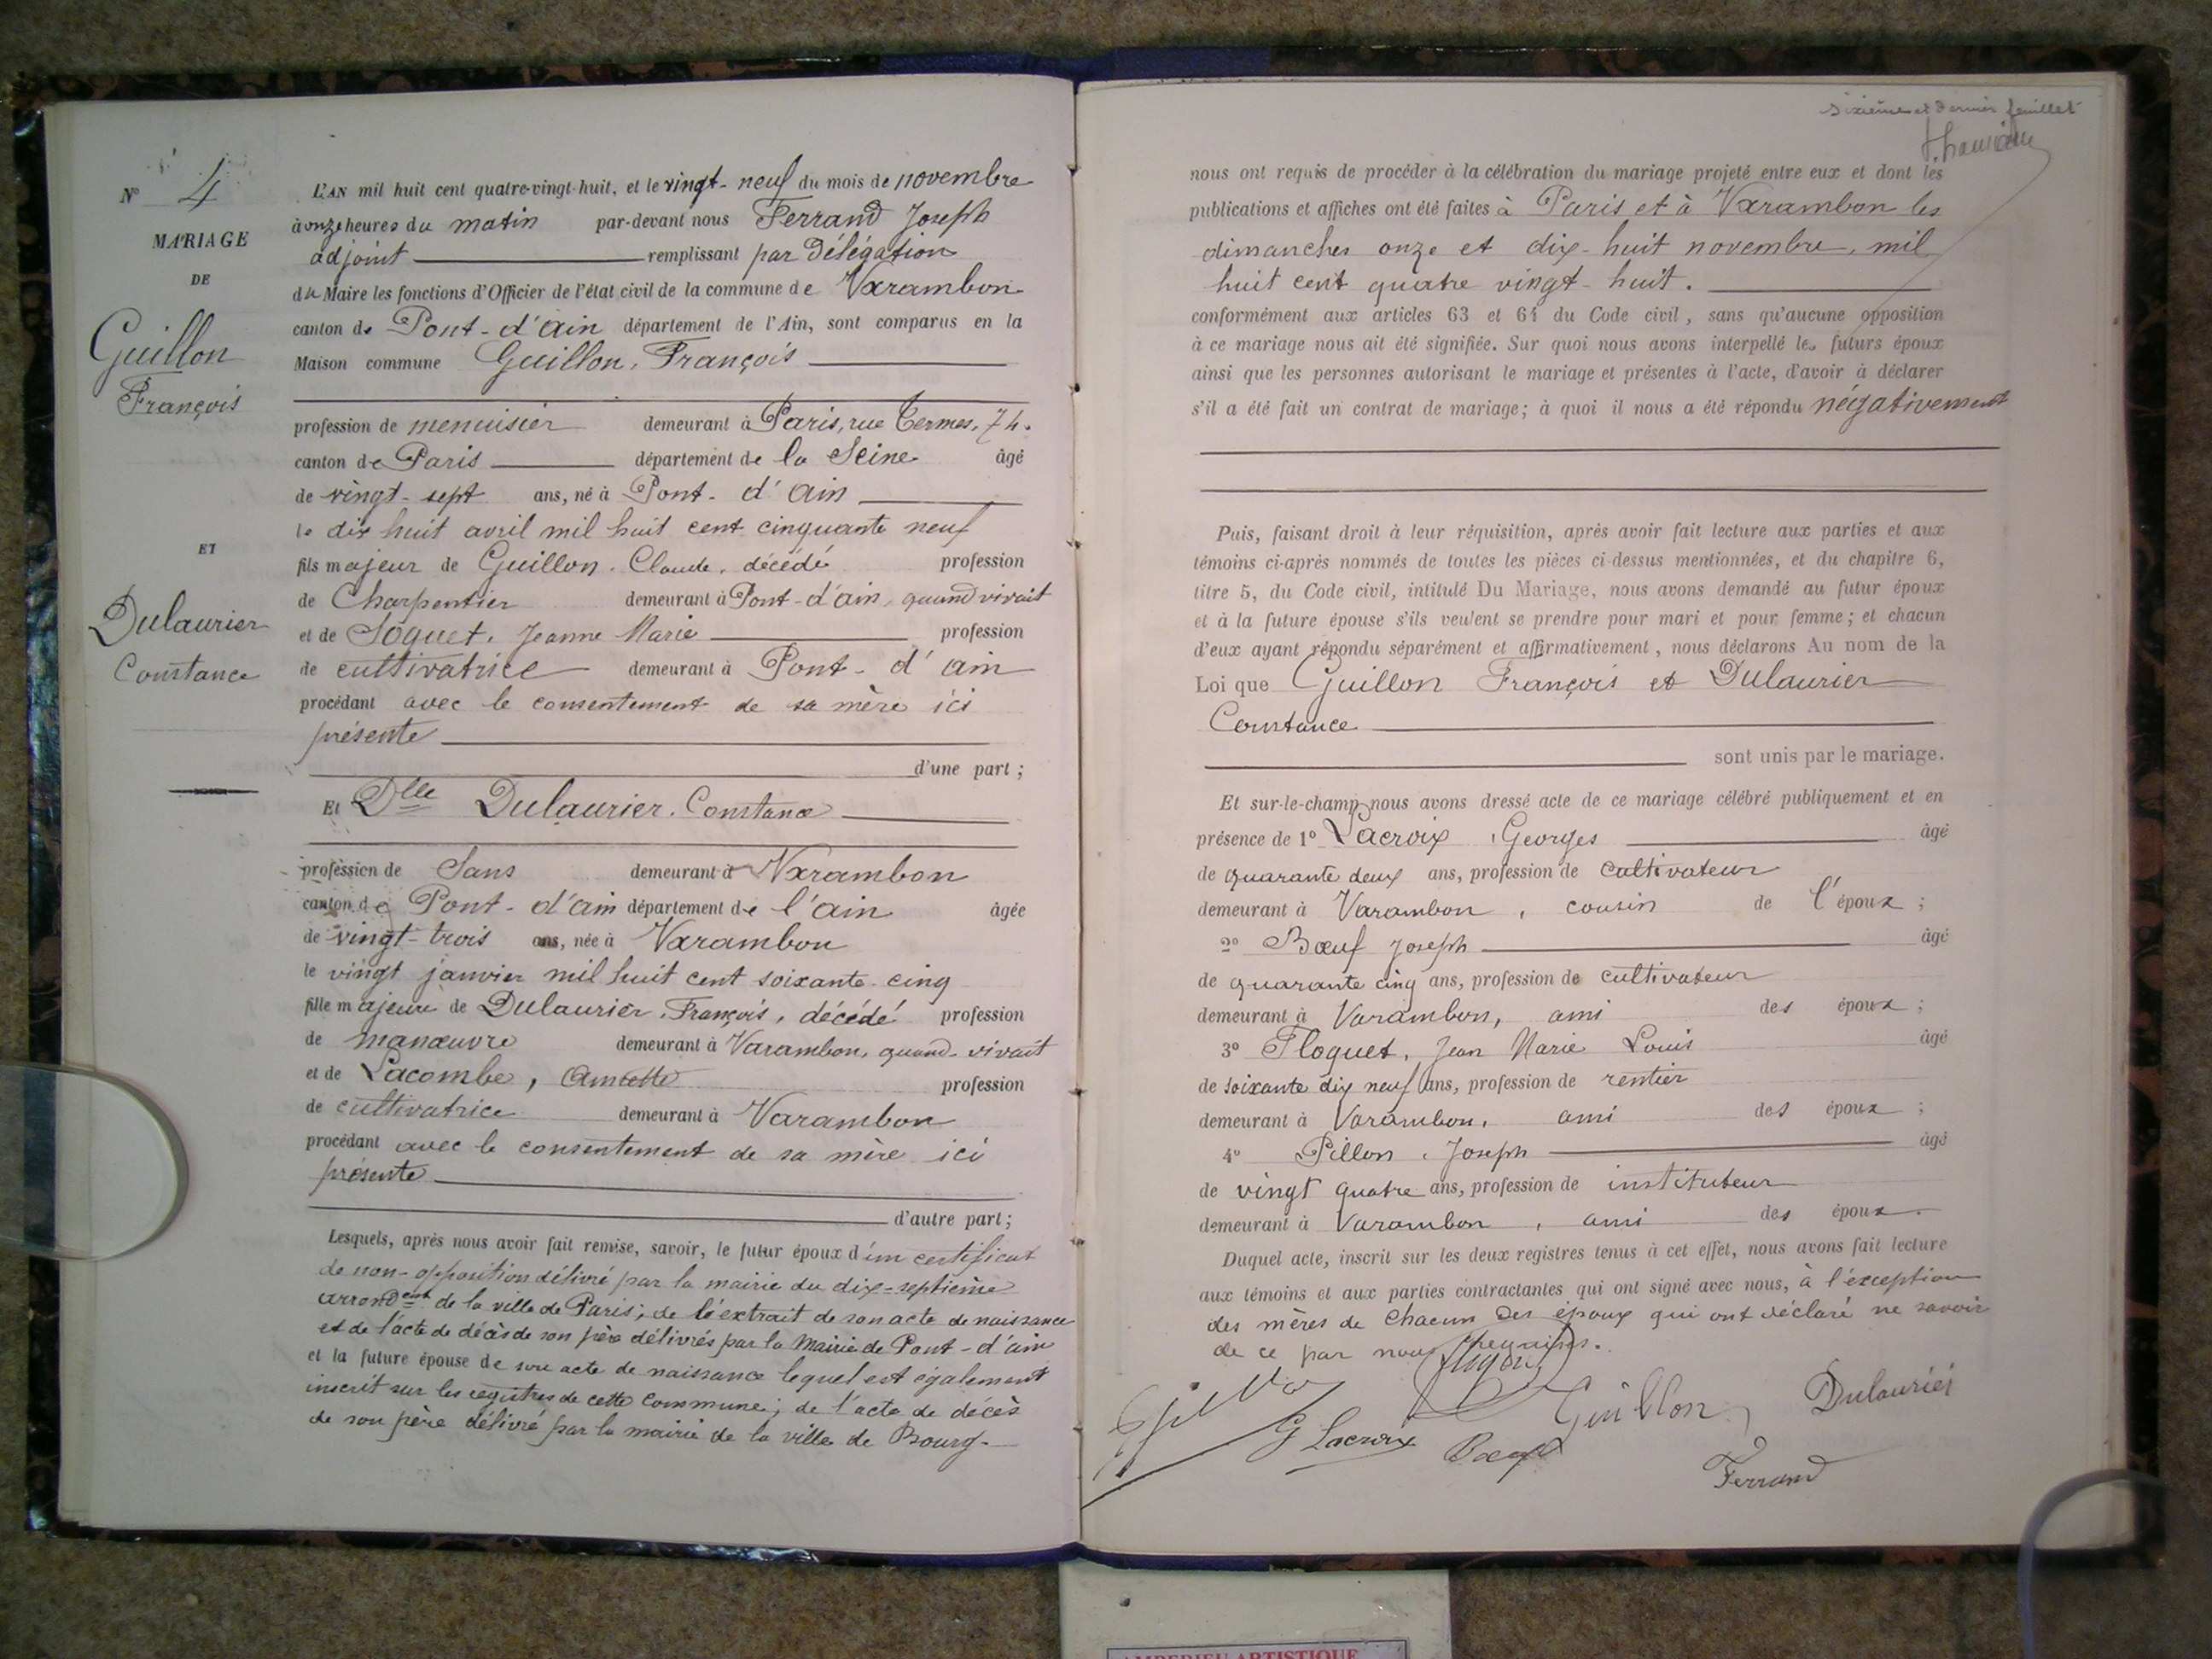 N° 4
MARIAGE
DE
Guillon
François
ET
Dulaurier
Constance
L'AN mil huit cent quatre-vingt-huit, et le vingt-neuf du mois de novembre
à onze heures du matin par-devant nous Ferrand Joseph
adjoint remplissant par délégation
du Maire les fonctions d'Officier de l'état civil de la commune de Varambon
canton de Pont-d'Ain département de l'Ain, sont comparus en la
Maison commune Guillon, François
profession de menuisier demeurant à Paris, rue Termes, 74.
canton de Paris département de la Seine âgé
de vingt-sept ans, né à Pont-d'Ain
le dix huit avril mil huit cent cinquante neuf
fils majeur de Guillon, Claude, décédé profession
de Charpentier demeurant à Pont-d'ain, quand vivait
et de Soquet, Jeanne Marie profession
de cultivatrice demeurant à Pont-d'ain
procédant avec le consentement de sa mère ici
présente
d'une part ;
Et Dlle Dulaurier, Constance
profession de Sans demeurant à Varambon
canton de Pont-d'ain département de l'ain âgée
de vingt-trois ans, née à Varambon
le vingt janvier mil huit cent soixante-cinq
fille majeure de Dulaurier, François, décédé profession
de manœuvre demeurant à Varambon, quand vivait
et de Lacombe, profession
de cultivatrice demeurant à Varambon
procédant avec le consentement de sa mère ici
présente
d'autre part ;
Lesquels, après nous avoir fait remise, savoir, le futur époux d'un certificat
de non-opposition délivré par la mairie du dix-septième
arrondent de la ville de Paris ; de l'extrait de son acte de naissance
et de l'acte de décès de son père délivrés par la Mairie de Pont-d'ain
et la future épouse de son acte de naissance lequel est également
inscrit sur les registres de cette commune ; de l'acte de décès
de son père délivré par la mairie de la ville de Bourg.
sixième et dernier feuillet
nous ont requis de procéder à la célébration du mariage projeté entre eux et dont les
publications et affiches ont été faites à Paris et à Varambon les
dimanches onze et dix-huit novembre, mil
huit cent quatre vingt-huit.
conformément aux articles 63 et 64 du Code civil, sans qu'aucune opposition
à ce mariage nous ait été signifiée. Sur quoi nous avons interpellé les futurs époux
ainsi que les personnes autorisant le mariage et présentes à l'acte, d'avoir à déclarer
s'il a été fait un contrat de mariage ; à quoi il nous a été répondu négativement
Puis, faisant droit à leur réquisition, après avoir fait lecture aux parties et aux
témoins ci-après nommés de toutes les pièces ci-dessus mentionnées, et du chapitre 6,
titre 5, du Code civil, intitulé Du Mariage, nous avons demandé au futur époux
et à la future épouse s'ils veulent se prendre pour mari et pour femme ; et chacun
d'eux ayant répondu séparément et affirmativement, nous déclarons Au nom de la
Loi que Guillon François et Dulaurier
Constance
sont unis par le mariage.
Et sur-le-champ nous avons dressé acte de ce mariage célébré publiquement et en
présence de 1° Lacroix, Georges âgé
de quarante deux ans, profession de cultivateur
demeurant à Varambon, cousin de l'époux ;
2° Bœuf Joseph âgé
de quarante cinq ans, profession de cultivateur
demeurant à Varambon, ami des époux ;
3° Floquet, Jean Marie Louis âgé
de soixante dix neuf ans, profession de rentier
demeurant à Varambon, ami des époux ;
4° Pillon, Joseph âgé
de vingt quatre ans, profession de instituteur
demeurant à Varambon, ami des époux.
Duquel acte, inscrit sur les deux registres tenus à cet effet, nous avons fait lecture
aux témoins et aux parties contractantes qui ont signé avec nous, à l'exception
des mères de chacun des époux qui ont déclaré ne savoir
de ce par nous requises.
Guillon Dulaurier
G Lacroix Bœuf
Ferrand
AMBERIEU ARTISTIQUE